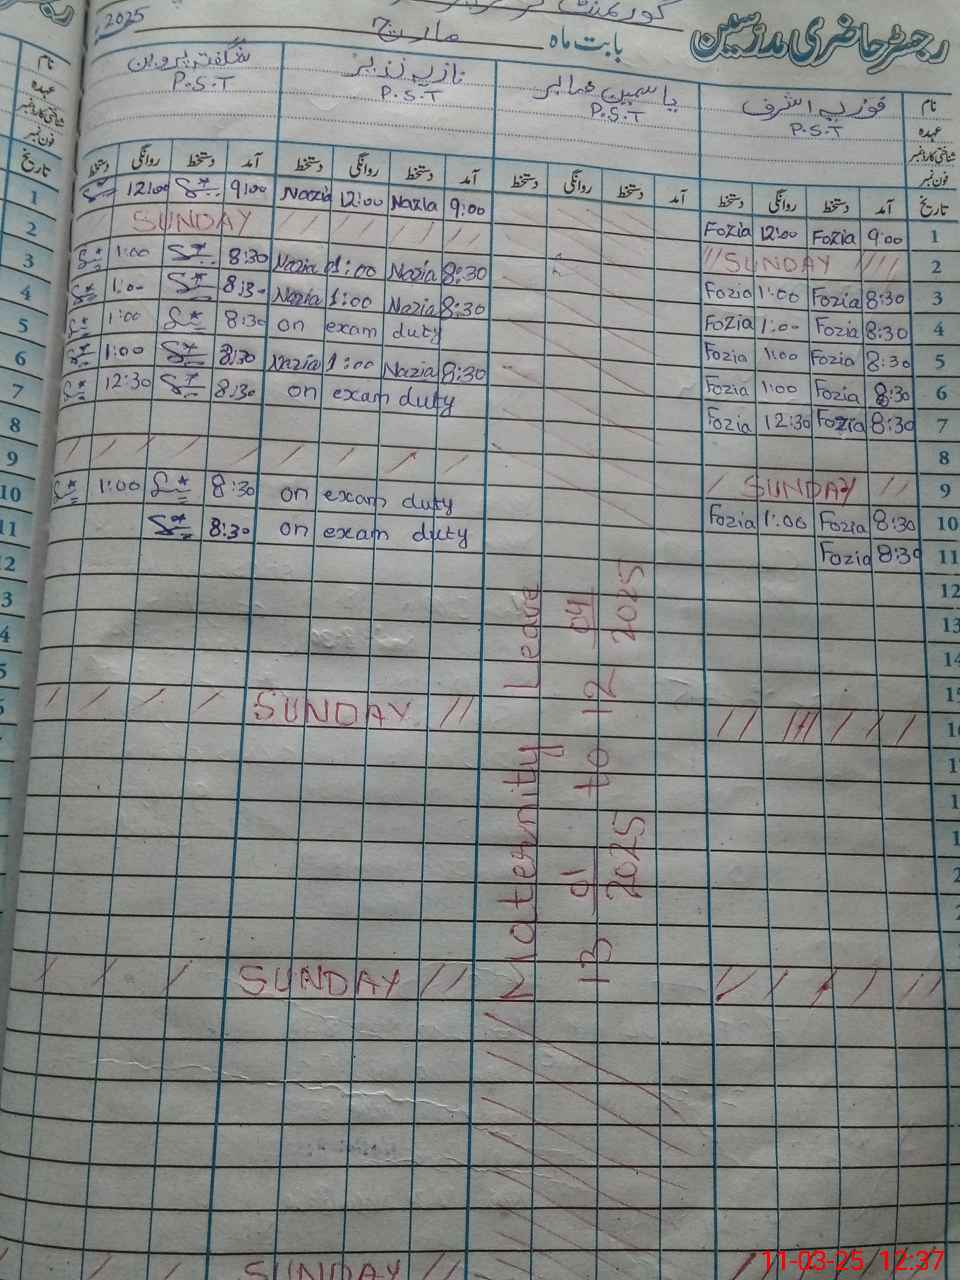 2025
رجسٹر حاضری مدرسین بابت ماہ مارچ
نام فوزیہ اشرف یاسمین ہمابر نازیہ نذیر شگفتہ پروین نام
عہدہ P.S.T P.S.T P.S.T P.S.T عہدہ
شناختی کارڈ نمبر
فون نمبر
تاریخ آمد دستخط روانگی دستخط آمد دستخط روانگی دستخط آمد دستخط روانگی دستخط آمد دستخط روانگی دستخط تاریخ
1 9:00 Fozia 12:00 Fozia 9:00 Nazia 12:00 Nazia 9:00 12:00 1
2 SUNDAY SUNDAY 2
3 8:30 Fozia 1:00 Fozia 8:30 Nazia 1:00 Nazia 8:30 1:00 3
4 8:30 Fozia 1:00 Fozia 8:30 Nazia 1:00 Nazia 8:30 1:00 4
5 8:30 Fozia 1:00 Fozia on exam duty 8:30 1:00 5
6 8:30 Fozia 1:00 Fozia 8:30 Nazia 1:00 Nazia 8:30 1:00 6
7 8:30 Fozia 12:30 Fozia on exam duty 8:30 12:30 7
8 8
9 SUNDAY 9
10 8:30 Fozia 1:00 Fozia on exam duty 8:30 1:00 10
11 8:30 Fozia on exam duty 8:30 11
12
13
14
15
SUNDAY
SUNDAY
SUNDAY
Maternity Leave
13 01 2025 to 12 04 2025
11-03-25 12:37